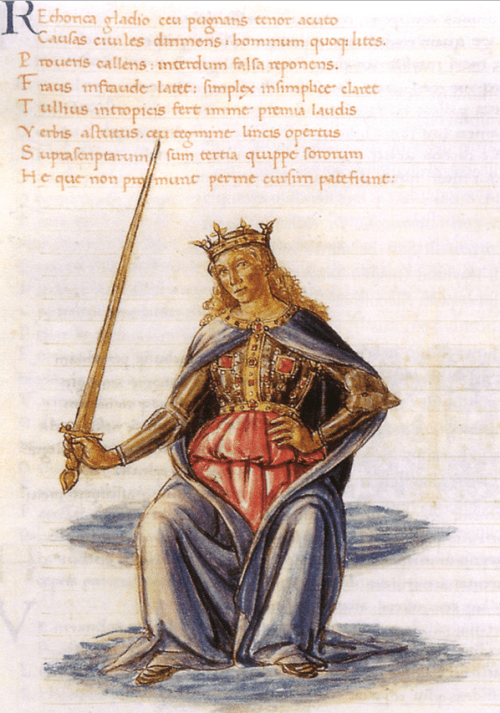 REthorica gladio ceu pugnans tenor acuto
Causas ciuiles dirimens: hominum quoq; lites.
Pro ueris callens: interdum falsa reponens.
Fraus infraude latet: simplex insimplice claret
Tullius intropicis fert in me premia laudis
Verbis astutus. ceu tegmine lincis opertus
Suprascriptarum sum tertia quippe sororum
He que non promunt perme cursim patefiunt: